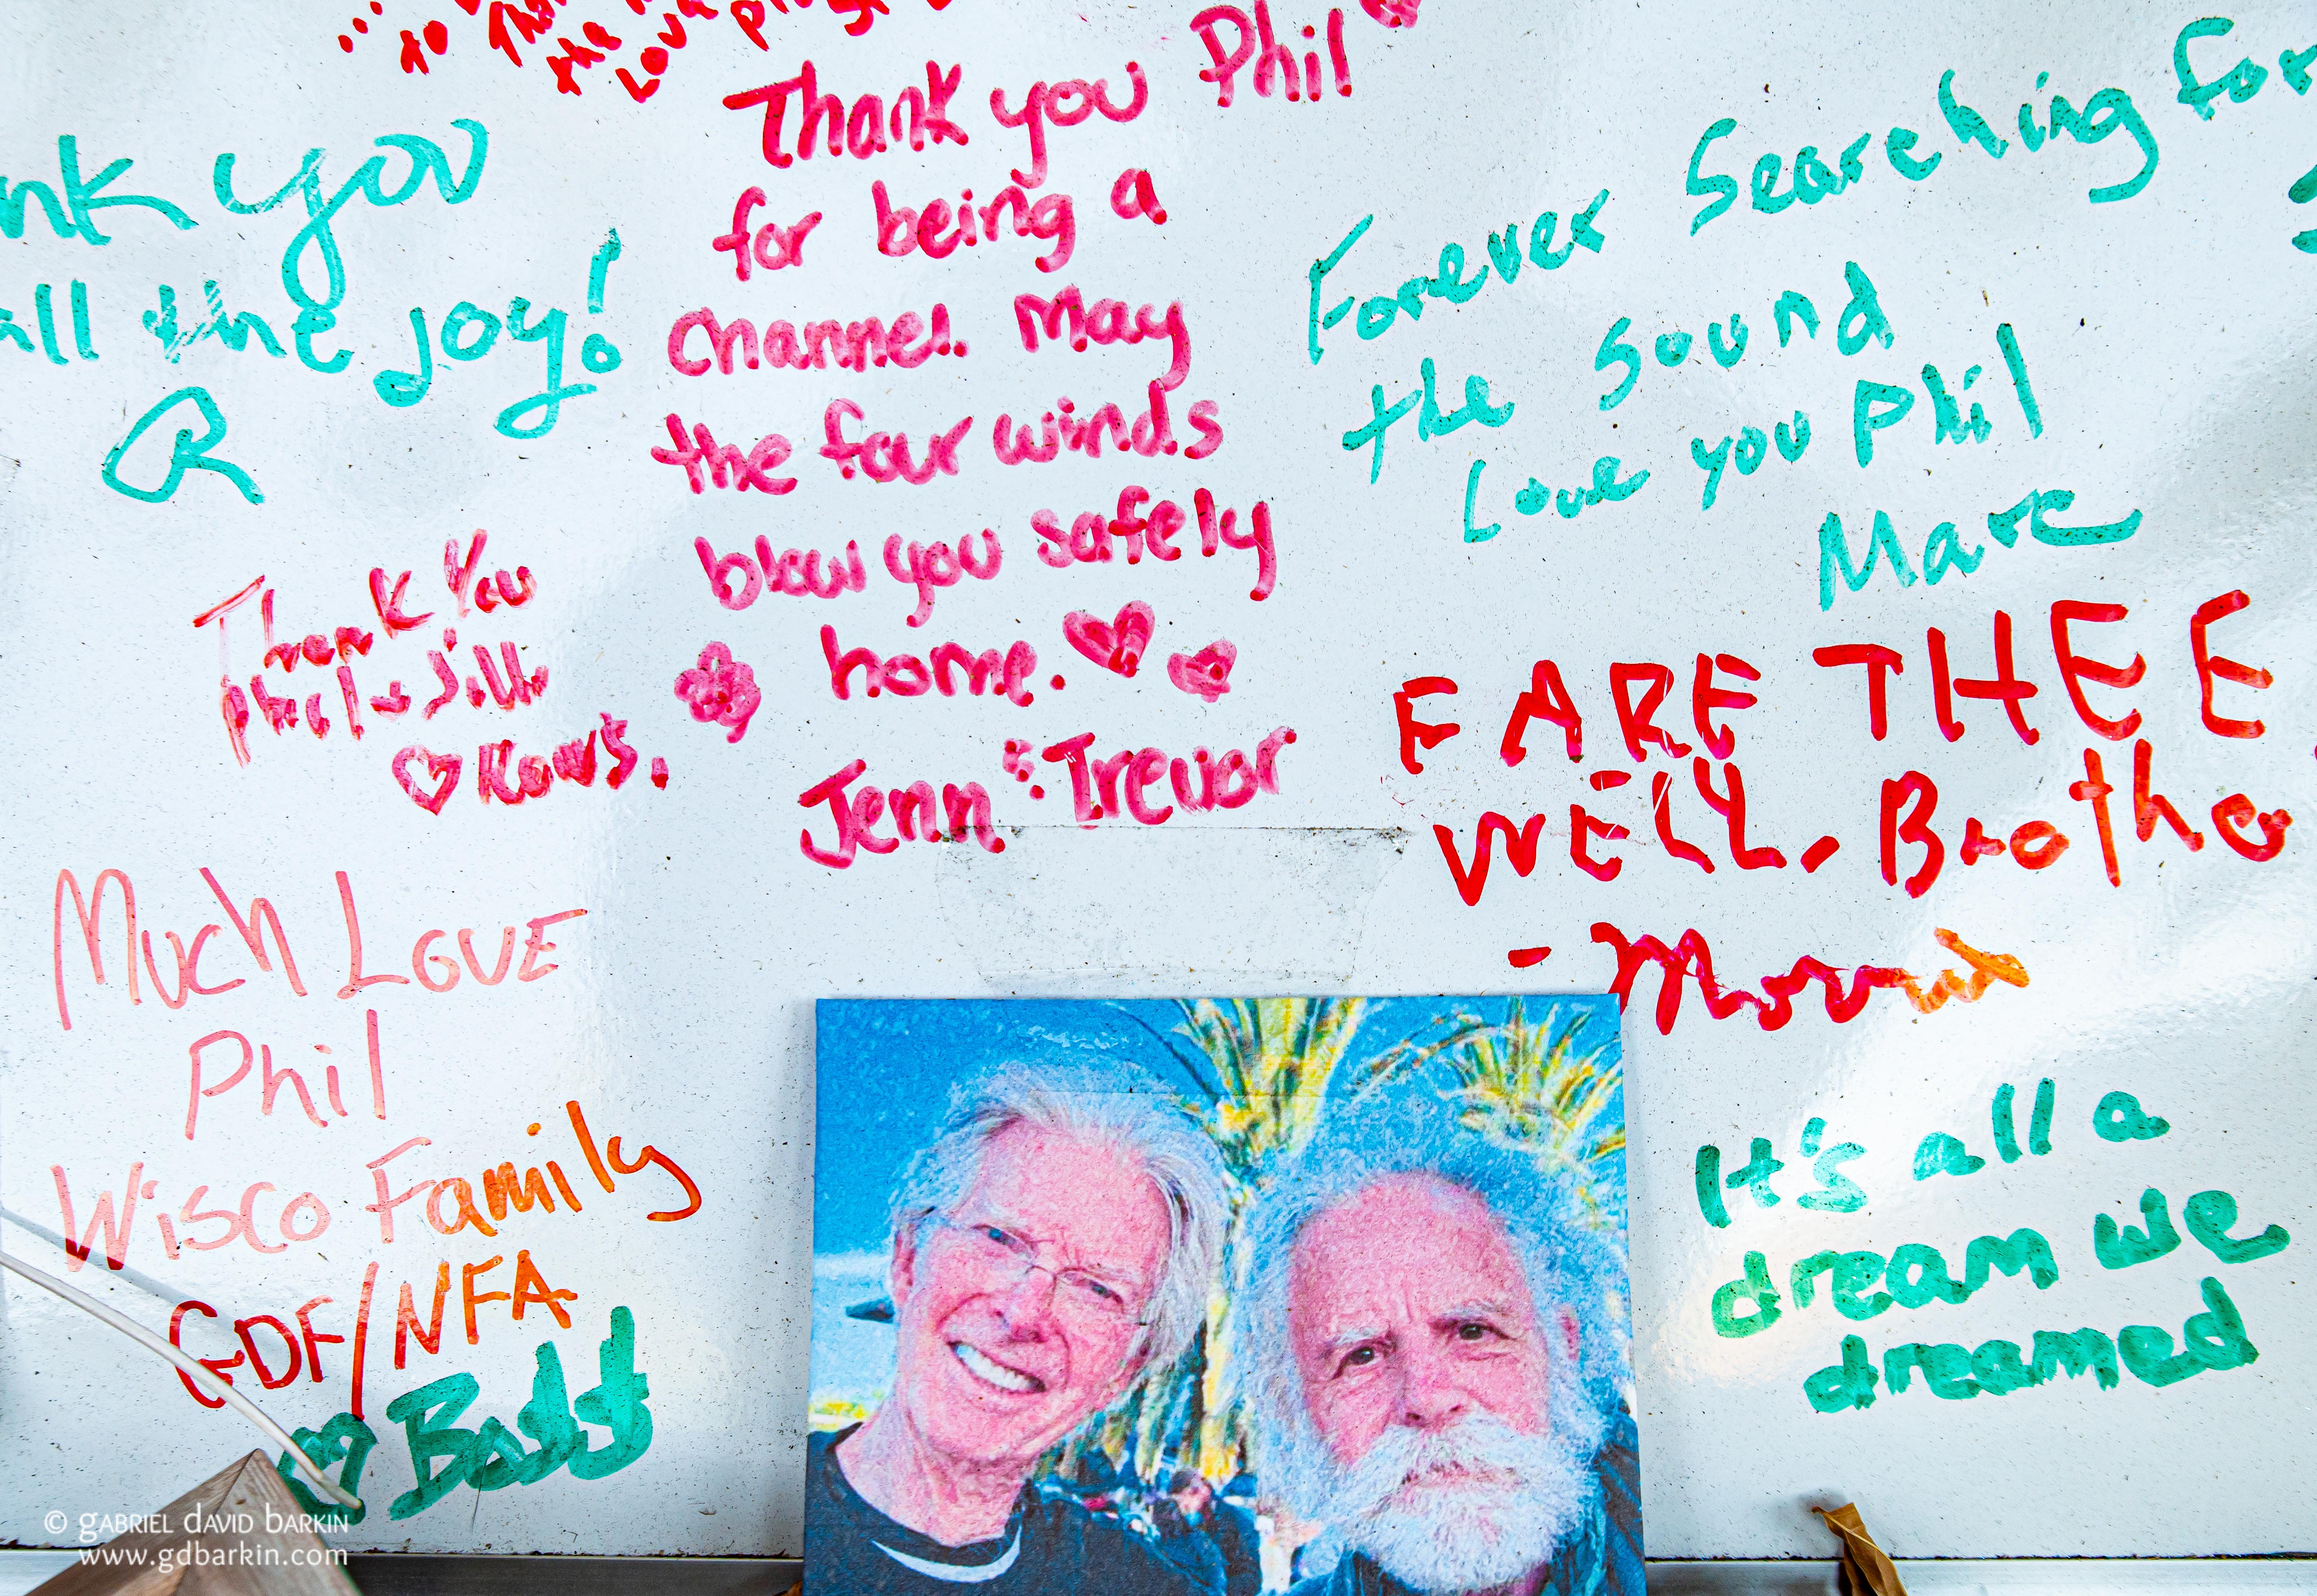 to
the
Love
Thank you Phil
for being a
channel. May
the four winds
blow you safely
home.
Jenn & Trevor
nk you
all the joy!
R
Thank You
Phil + Jill
Much Love
Phil
Wisco Family
GDF/NFA
Forever Searching for
the Sound
Love you Phil
Marc
FARE THEE
WELL, Brother
It's all a
dream we
dreamed
© GABRIEL DAVID BARKIN
www.gdbarkin.com